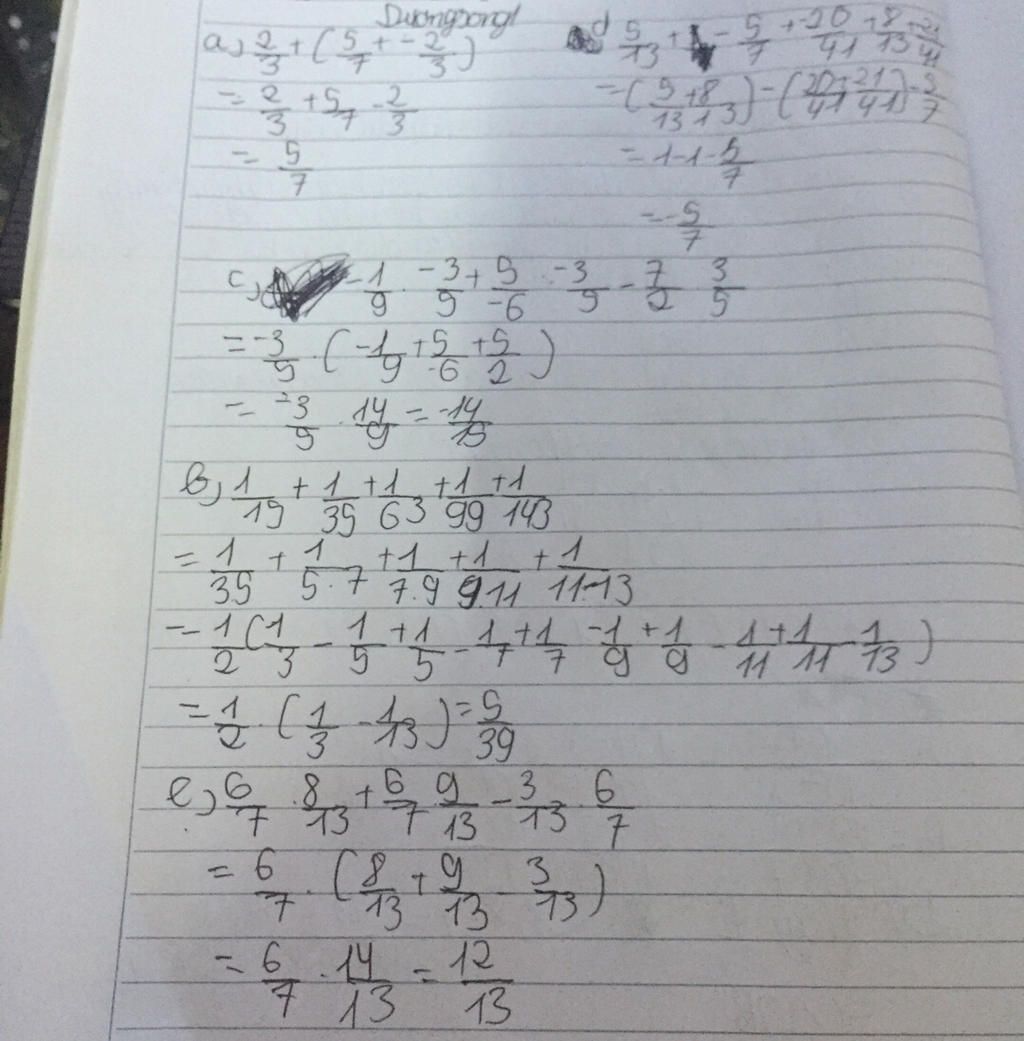 Duongsongl
a, 2/3 + ( 5/7 + -2/3 )
= 2/3 + 5/7 - 2/3
= 5/7
d, 5/13 + - 5/7 + -20/41 + 8/13 + -21/41
= ( 5/13 + 8/13 ) - ( 20/41 + 21/41 ) - 5/7
= 1 - 1 - 5/7
= -5/7
c, -1/9 . -3/5 + 5/-6 . -3/5 - 7/2 . 3/5
= -3/5 . ( -1/9 + 5/-6 + 5/2 )
= -3/5 . 14/9 = -14/15
b, 1/15 + 1/35 + 1/63 + 1/99 + 1/143
= 1/35 + 1/5.7 + 1/7.9 + 1/9.11 + 1/11.13
= 1/2 ( 1/3 - 1/5 + 1/5 - 1/7 + 1/7 - 1/9 + 1/9 - 1/11 + 1/11 - 1/13 )
= 1/2 . ( 1/3 - 1/13 ) = 5/39
e, 6/7 . 8/13 + 6/7 . 9/13 - 3/13 . 6/7
= 6/7 . ( 8/13 + 9/13 - 3/13 )
= 6/7 . 14/13 = 12/13